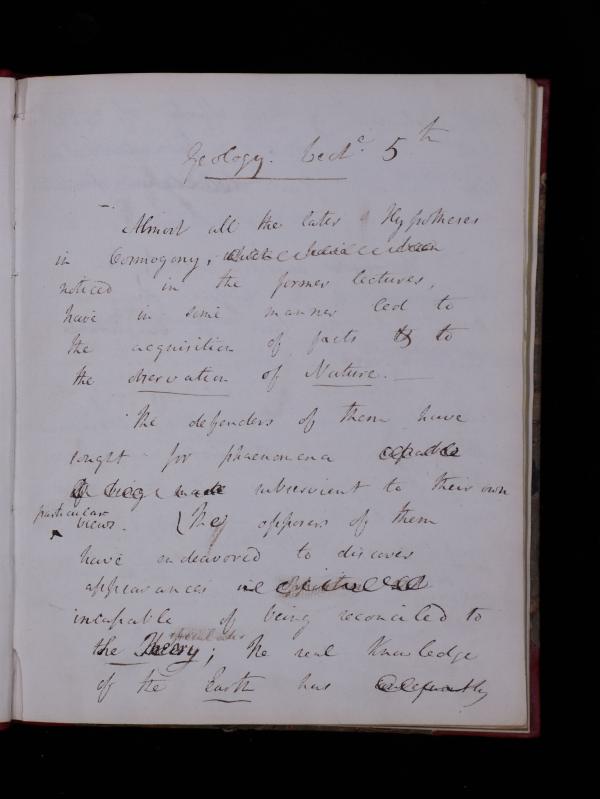 Geology. Lect.e 5th
Almost all the later Hypotheses
in Cosmogony, which have been
noticed in the former lectures,
have in some manner led to
the acquisition of facts & to
the observation of Nature. —
The defenders of them have
sought for phaenomena capable
of being made subservient to their own
particular
views. (The opposers of them
have endeavored to discover
appearances
incapable of being reconciled to
the Theory; The real Knowledge
of the Earth has